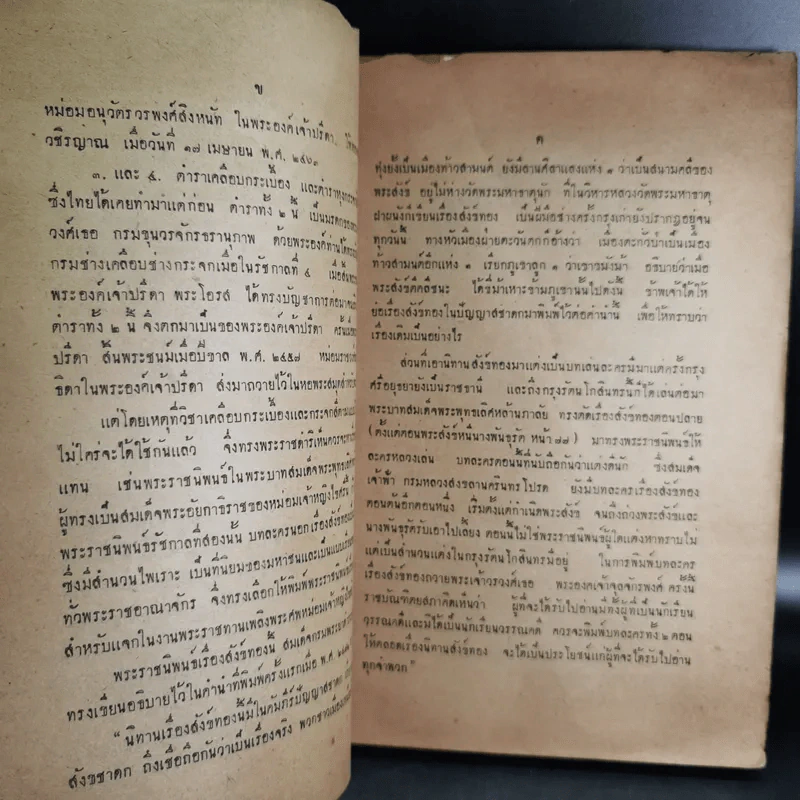 ข
หม่อมอนุวัตรวรพงศ์สิงหนัท ในพระองค์เจ้าปรีดา
วชิรญาณ เมื่อวันที่ ๑๗ เมษายน พ.ศ. ๒๔๖๓
๓. และ ๔. ตำราเคลือบกระเบื้อง และตำราหุงกระจก
ซึ่งไทยได้เคยทำมาแต่ก่อน ตำราทั้ง ๒ นี้ เป็นมรดก
วงศ์เธอ กรมขุนวรจักรธรานุภาพ ด้วยพระองค์ท่านได้
กรมช่างเคลือบช่างกระจกเมื่อในรัชกาลที่ ๔ เมื่อ
พระองค์เจ้าปรีดา พระโอรส ได้ทรงบัญชาการต่อมา
ตำราทั้ง ๒ นี้ จึงตกมาเป็นของพระองค์เจ้าปรีดา ครั้น
ปรีดา สิ้นพระชนม์เมื่อปีขาล พ.ศ. ๒๔๕๗ หม่อมราช
ธิดาในพระองค์เจ้าปรีดา ส่งมาถวายไว้ในหอพระสมุด
แต่โดยเหตุที่วิชาเคลือบกระเบื้องและกระจกสี
ไม่ใคร่จะได้ใช้กันแล้ว จึงทรงพระราชดำริเห็นควรจะ
แทน เช่นพระราชนิพนธ์ในพระบาทสมเด็จพระพุทธเลิศ
ผู้ทรงเป็นสมเด็จพระอัยกาธิราชของหม่อมเจ้าหญิงไขศรี
พระราชนิพนธ์รัชกาลที่สองนั้น บทละครนอกเรื่องสังข์ทอง
ซึ่งมีสำนวนไพเราะ เป็นที่นิยมของมหาชนและเป็นแบบ
ทั่วพระราชอาณาจักร จึงทรงเลือกให้พิมพ์พระราชนิพนธ์
สำหรับแจกในงานพระราชทานเพลิงพระศพหม่อมเจ้าหญิง
พระราชนิพนธ์เรื่องสังข์ทองนี้ สมเด็จกรมพระยา
ทรงเขียนอธิบายไว้ในคำนำที่พิมพ์ครั้งแรกเมื่อ พ.ศ.
“นิทานเรื่องสังข์ทองนี้มีในคัมภีร์ปัญญาสชาดก
สังขชาดก ถึงเชื่อถือกันว่าเป็นเรื่องจริง พวกชาวเมือง
ค
ทุ่งยั้งเป็นเมืองท้าวสามนต์ ยังมีลานศิลาแลงแห่ง ๑ ว่าเป็นสนามคลีของ
พระสังข์ อยู่ไม่ห่างวัดพระมหาธาตุนัก ที่ในวิหารหลวงวัดพระมหาธาตุ
ฝาผนังก็เขียนเรื่องสังข์ทอง เป็นฝีมือช่างครั้งกรุงเก่ายังปรากฏอยู่จน
ทุกวันนี้ ทางหัวเมืองฝ่ายตะวันตกก็อ้างว่า เมืองตะกั่วป่าเป็นเมือง
ท้าวสามนต์อีกแห่ง ๑ เรียกภูเขาลูก ๑ ว่าเขาขมังม้า อธิบายว่าเมื่อ
พระสังข์ตีคลีชนะ ได้ขี่ม้าเหาะข้ามภูเขานั้นไปดังนี้ ข้าพเจ้าได้ให้
ย่อเรื่องสังข์ทองในปัญญาสชาดกมาพิมพ์ไว้ต่อคำนำนี้ เพื่อให้ทราบว่า
เรื่องเดิมเป็นอย่างไร
ส่วนที่เอานิทานสังข์ทองมาแต่งเป็นบทเล่นละครมีมาแต่ครั้งกรุง
ศรีอยุธยายังเป็นราชธานี และถึงกรุงรัตนโกสินทรนี้ก็ได้เล่นต่อมา
พระบาทสมเด็จพระพุทธเลิศหล้านภาลัย ทรงตัดเรื่องสังข์ทองตอนปลาย
(ตั้งแต่ตอนพระสังข์หนีนางพันธุรัต หน้า ๗๗) มาทรงพระราชนิพนธ์ให้
ละครหลวงเล่น บทละครตอนนี้ที่นับถือกันว่าแต่งดีนัก ซึ่งสมเด็จ
เจ้าฟ้า กรมหลวงสงลานครินทร โปรด ยังมีบทละครเรื่องสังข์ทอง
ตอนต้นอีกตอนหนึ่ง เริ่มตั้งแต่กำเนิดพระสังข์ จนถึงถ่วงพระสังข์และ
นางพันธุรัตรับเอาไปเลี้ยง ตอนนี้ไม่ใช่พระราชนิพนธ์ผู้ใดแต่งหาทราบไม่
แต่เป็นสำนวนแต่งในกรุงรัตนโกสินทรมีอยู่ ในการพิมพ์บทละคร
เรื่องสังข์ทองถวายพระเจ้าวรวงศ์เธอ พระองค์เจ้าจุลจักรพงศ์ ครั้งนี้
ราชบัณฑิตยสภาคิดเห็นว่า ผู้ที่จะได้รับไปอ่านมีทั้งผู้ที่เป็นนักเรียน
วรรณคดีและมิได้เป็นนักเรียนวรรณคดี ควรจะพิมพ์บทละครทั้ง ๒ ตอน
ให้ตลอดเรื่องนิทานสังข์ทอง จะได้เป็นประโยชน์แก่ผู้ที่จะได้รับไปอ่าน
ทุกจำพวก”